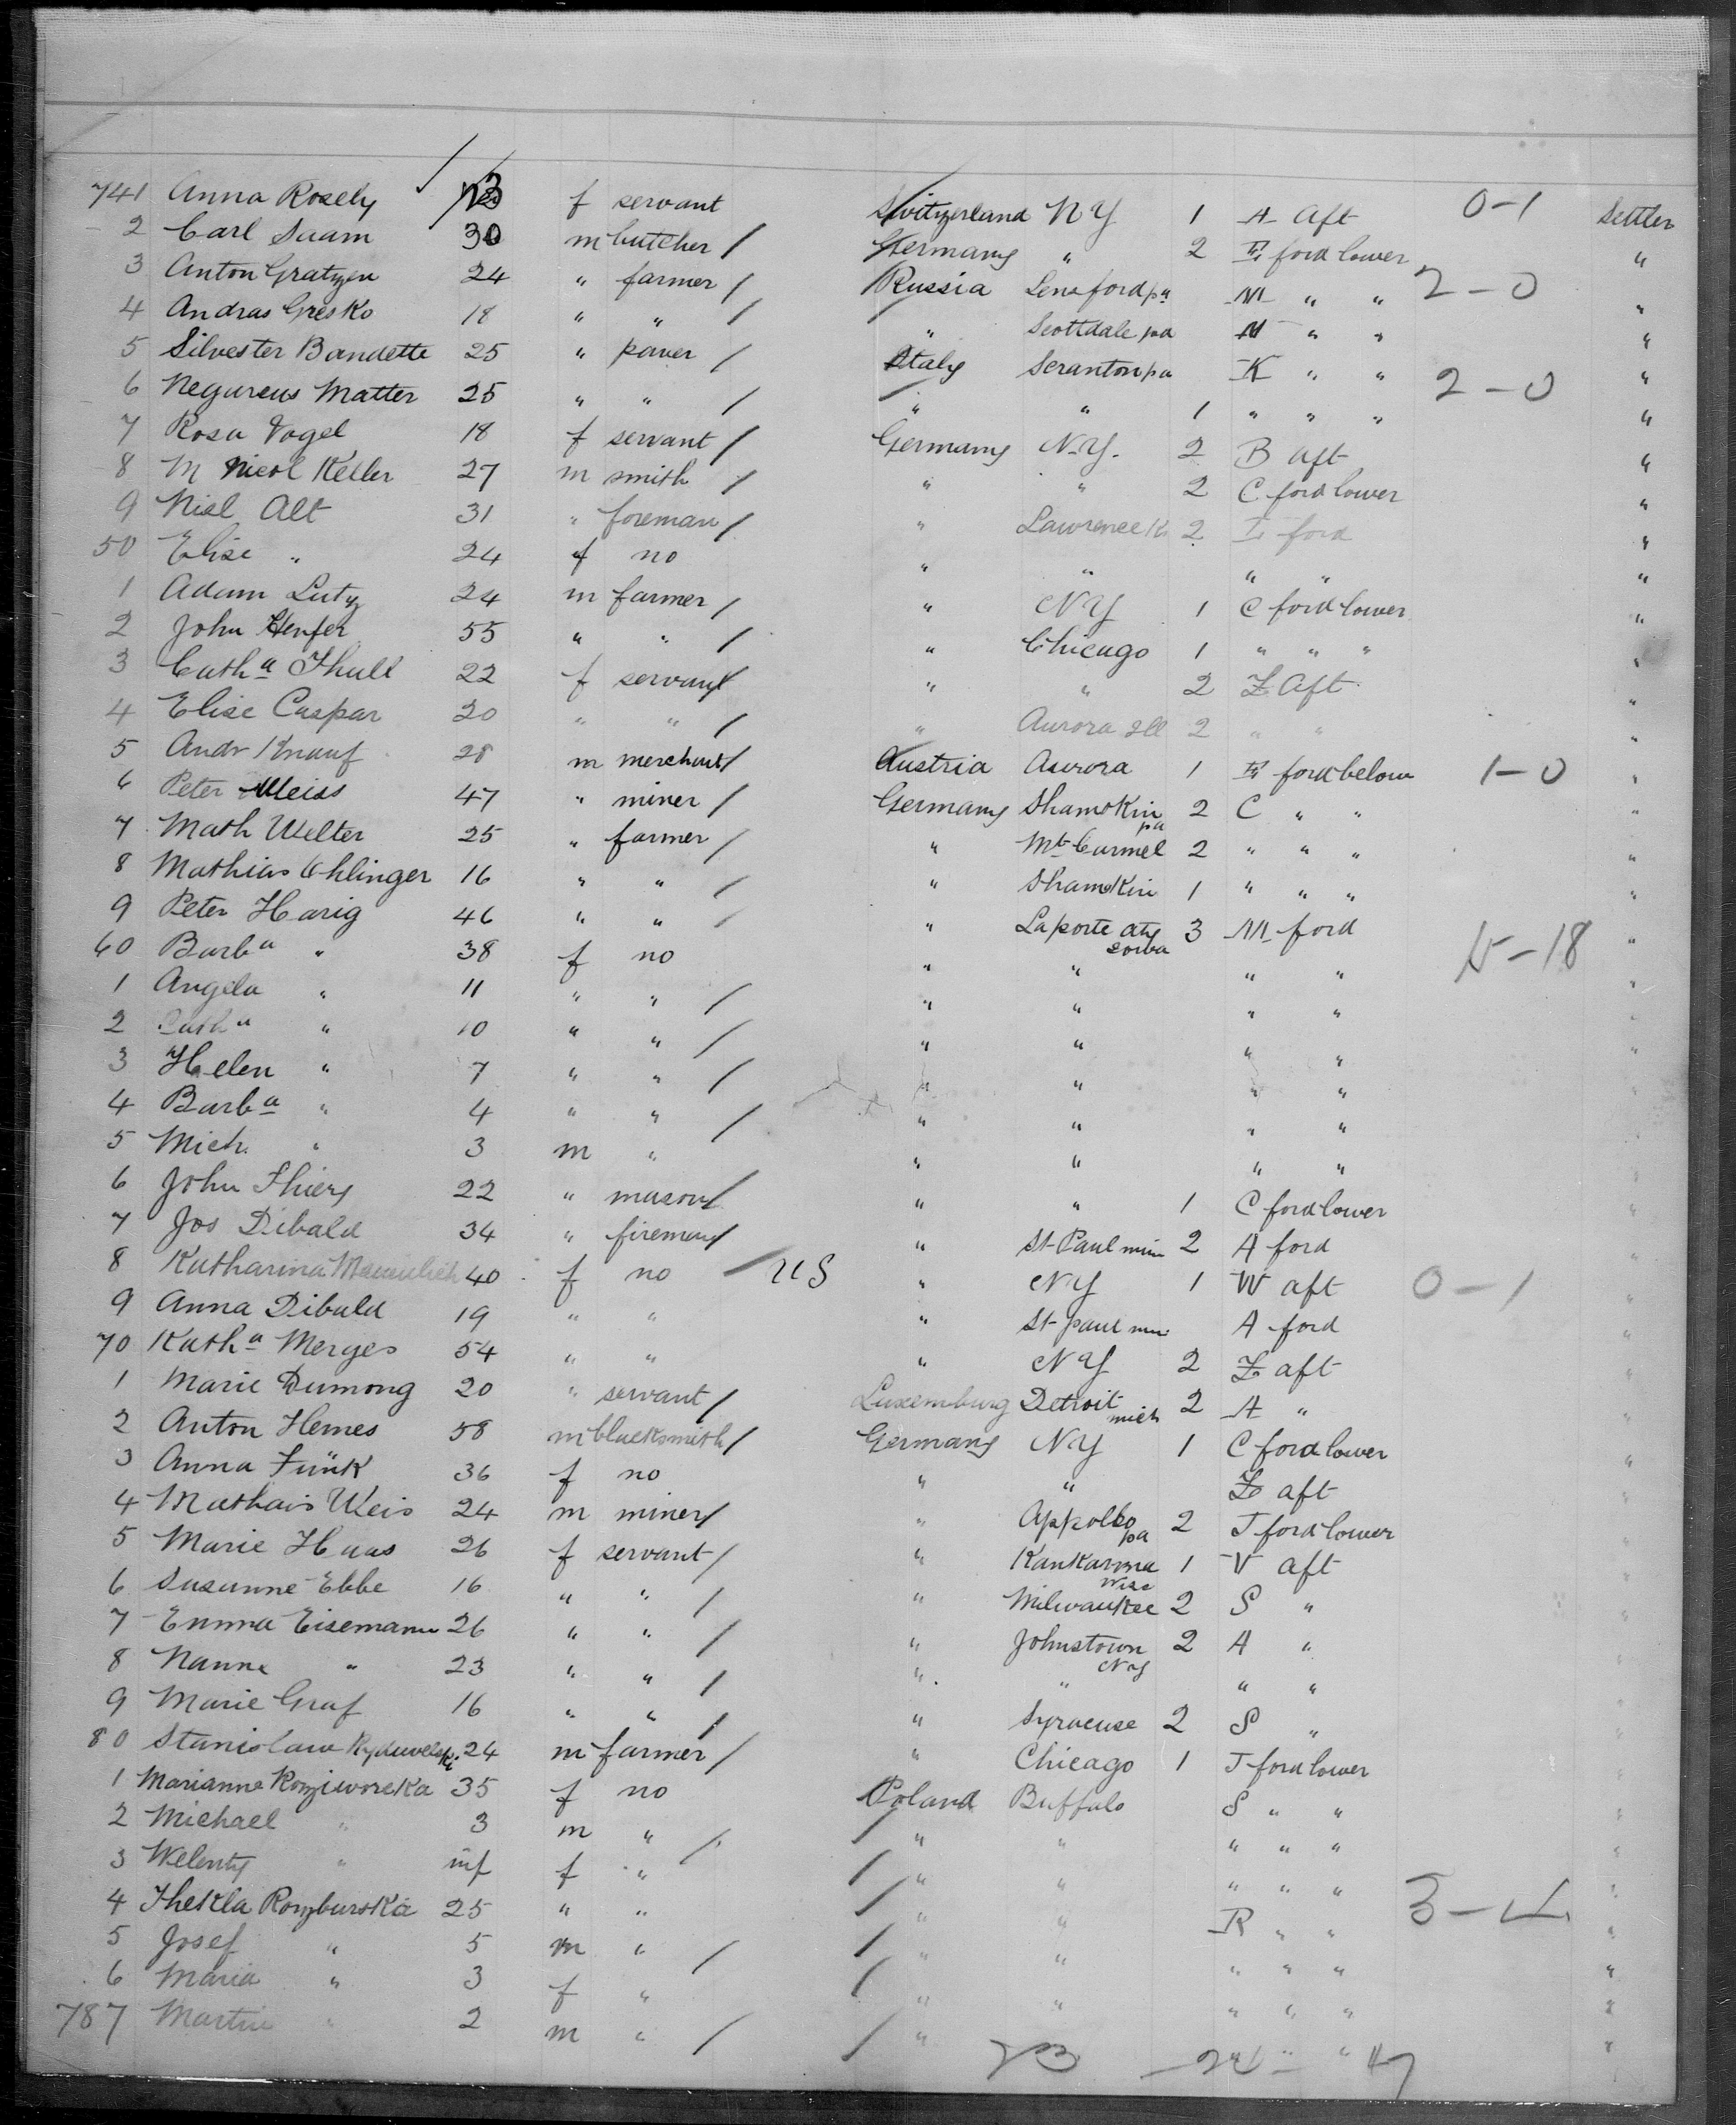 741 Anna Rosely 23 f servant Switzerland NY 1 A Aft 0-1 Settler
2 Carl Saam 30 m butcher / Germany " 2 E ford lower "
3 Anton Gratzen 24 " farmer / Russia Lensford pa M " " 2-0 "
4 Andras Gresko 18 " " / " Scottdale pa M " " "
5 Silvester Bandette 25 " paver / Italy Scranton pa K " " "
6 Negureus Matter 25 " " / " " 1 " " " 2-0 "
7 Rosa Vogel 18 f servant / Germany N.Y. 2 B aft "
8 M Nicol Keller 27 m smith / " " 2 C ford lower "
9 Niel Alt 31 " foreman / " Lawrence 2 E ford "
50 Elise " 24 f no " " " " "
1 Adam Lutz 24 m farmer / " NY 1 C ford lower "
2 John Henfer 55 " " / " Chicago 1 " " " "
3 Cath a Thull 22 f servant / " " 2 Z Aft "
4 Elise Caspar 20 " " / " Aurora Ill 2 " " "
5 Andr Knauf 28 m merchant / Austria Aurora 1 E ford below 1-0 "
6 Peter Meiss 47 " miner / Germany Shamokin pa 2 C " " "
7 Math Welter 25 " farmer / " Mt Carmel 2 " " " "
8 Mathias Ohlinger 16 " " / " Shamokin 1 " " " "
9 Peter Harig 46 " " / " Laporte City Iowa 3 M ford "
60 Barb a " 38 f no " " " " 15-18 "
1 Angela " 11 " " / " " " " "
2 Cath a " 10 " " / " " " " "
3 Helen " 7 " " / " " " "
4 Barb a " 4 " " / " " " "
5 Mich " 3 m " " " " "
6 John Thiery 22 " mason / " " 1 C ford lower "
7 Jos Dibald 34 " fireman / " St Paul min 2 A ford "
8 Katharina 40 f no / US " NY 1 W aft 0-1 "
9 Anna Dibald 19 " " " St paul min A ford "
70 Kath a Merges 54 " " " NY 2 Z aft "
1 Marie Dumong 20 " servant / Luxemburg Detroit mich 2 A " "
2 Anton Hemes 58 m blacksmith / Germany NY 1 C ford lower "
3 Anna Funk 36 f no " " Z aft "
4 Mathais Weis 24 m miner / " Appollo pa 2 J ford lower "
5 Marie Haas 26 f servant / " Kankarma Wisc 1 V aft "
6 Susanne Ebbe 16 " " / " Milwaukee 2 S " "
7 Emma Eisemann 26 " " / " Johnstown NY 2 A " "
8 Nanne " 23 " " / " " " " "
9 Marie Graf 16 " " / " Syracuse 2 S " "
80 Stanislaw 24 m farmer / " Chicago 1 J ford lower "
1 Marianne Romziworeka 35 f no Poland Buffalo S " " "
2 Michael " 3 m " / / " " " " " "
3 Welenty " inf f " / " " " " " "
4 Thekla Romzburska 25 " " / " " R " " 3-4 "
5 Josef " 5 m " / / " " " " " "
6 Maria " 3 f " / " " " " " "
787 Martin " 2 m " / / " " " "
23 - 24 - 47